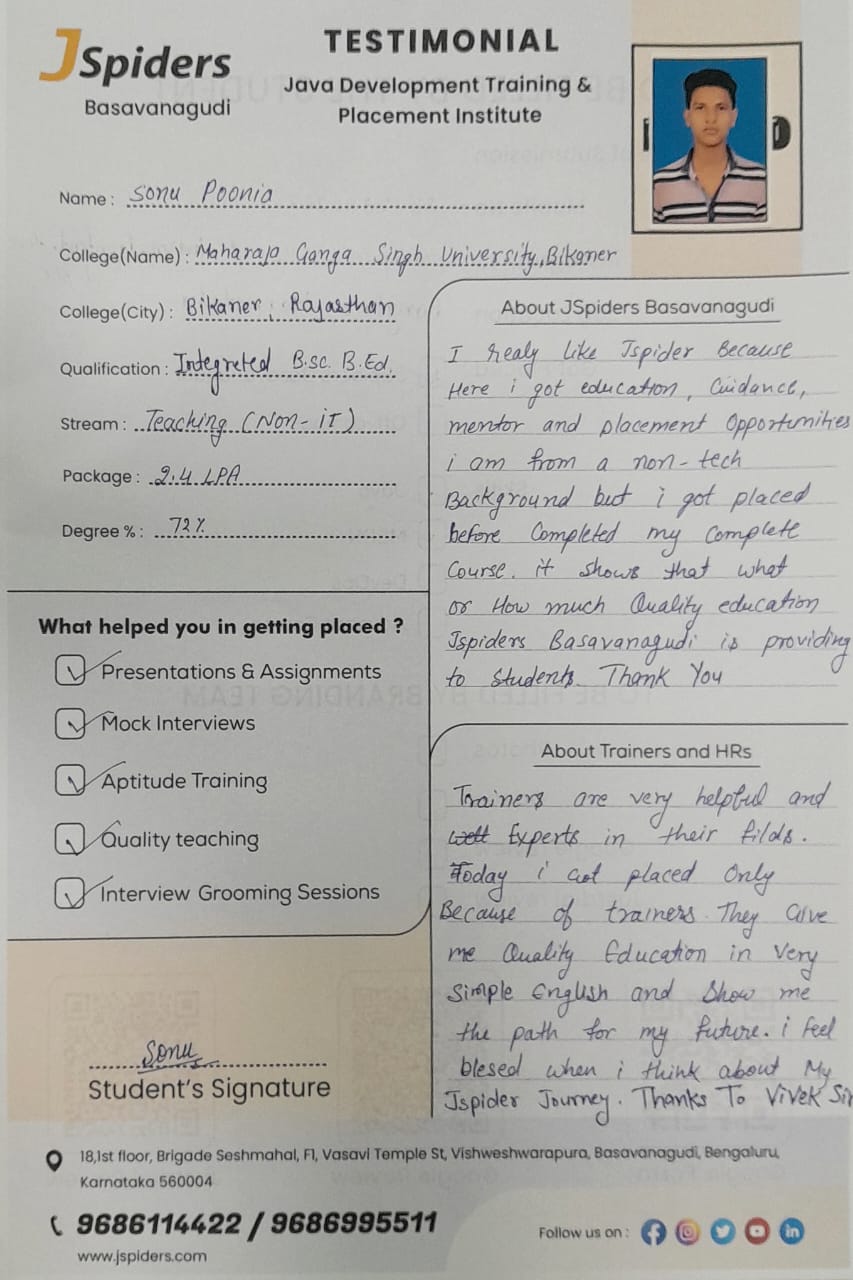 JSpiders
Basavanagudi
TESTIMONIAL
Java Development Training &
Placement Institute
Name : Sonu Poonia
College(Name) : Maharaja Ganga Singh University, Bikaner
College(City) : Bikaner, Rajasthan
Qualification : Integreted B.sc. B.Ed.
Stream : Teaching (Non-iT)
Package : 2.4 LPA
Degree % : 72%
What helped you in getting placed ?
Presentations & Assignments
Mock Interviews
Aptitude Training
Quality teaching
Interview Grooming Sessions
Sonu
Student's Signature
About JSpiders Basavanagudi
I realy like Jspider Because
Here i got education, Guidance,
mentor and placement Opportunities
i am from a non-tech
Background but i got placed
before Completed my Complete
Course. it shows that what
or How much Quality education
Jspiders Basavanagudi is providing
to Students. Thank You
About Trainers and HRs
Trainers are very helpful and
well Experts in their filds.
Today i Got placed Only
Because of trainers. They Give
me Quality Education in Very
Simple English and Show me
the path for my future. i feel
blesed when i think about My
Jspider Journey. Thanks To Vivek Sir
18,1st floor, Brigade Seshmahal, F1, Vasavi Temple St, Vishweshwarapura, Basavanagudi, Bengaluru,
Karnataka 560004
9686114422 / 9686995511
www.jspiders.com
Follow us on :